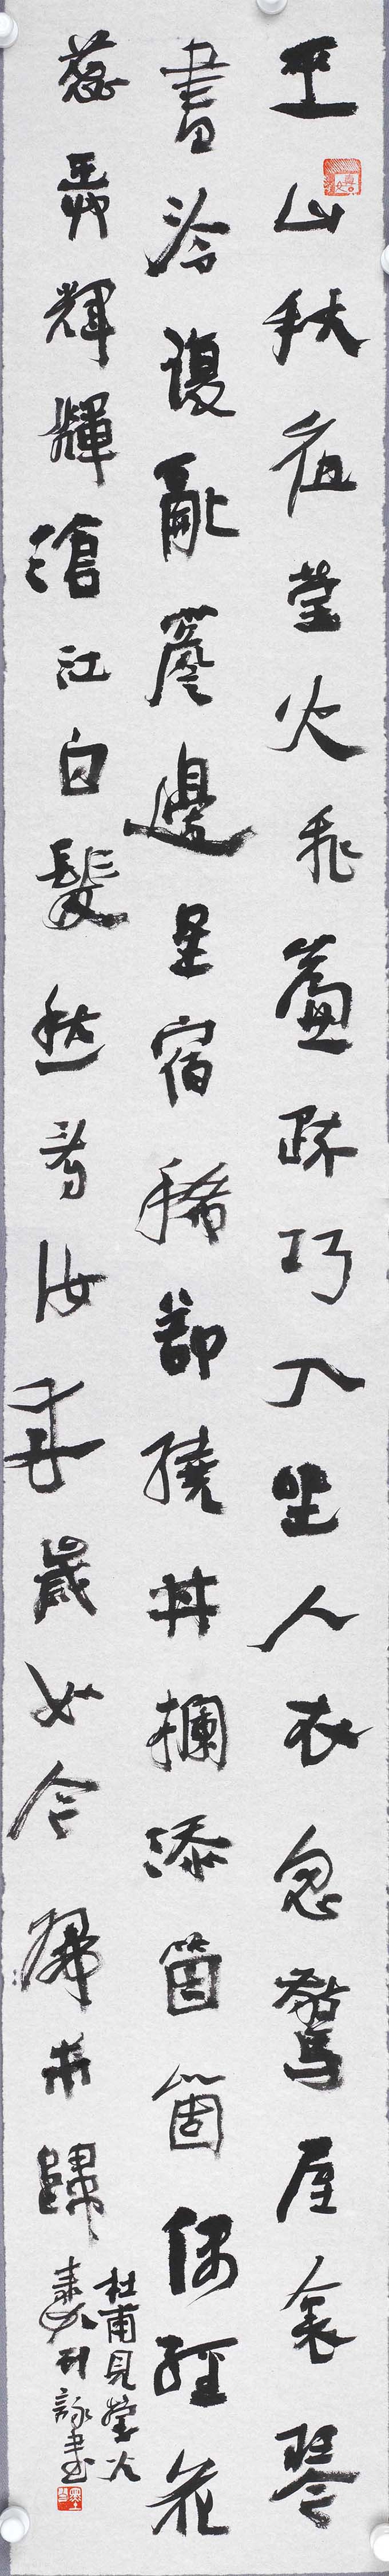 巫山秋夜螢火飛簾疎巧入坐人衣忽驚屋裏琴
書冷復亂簷邊星宿稀卻繞井欄添箇箇偶經花
蕊弄輝輝滄江白髮愁看汝來歲如今歸未歸
杜甫見螢火
詠書